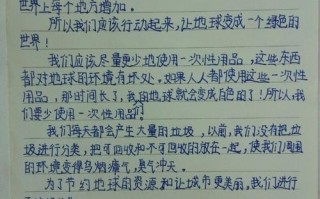 世界上每个地方增加。
所以我们应该行动起来，让地球变成一个绿色的
世界！
我们应该尽量更少地使用一次性用品，这些东西
都对地球的环境有坏处。如果人人都使用这些一次性
用品，那时间长了，我的地球就会变成白色的了！所以，我
们要少使用一次性用品。
我们每天都会产生大量的垃圾，以前，我们没有把垃
圾进行分类，把可回收和不可回收的放在一起，使我们周围
的环境变得乌烟瘴气，臭气冲天。
为了节约地球的资源和让城市更美丽，我们进行